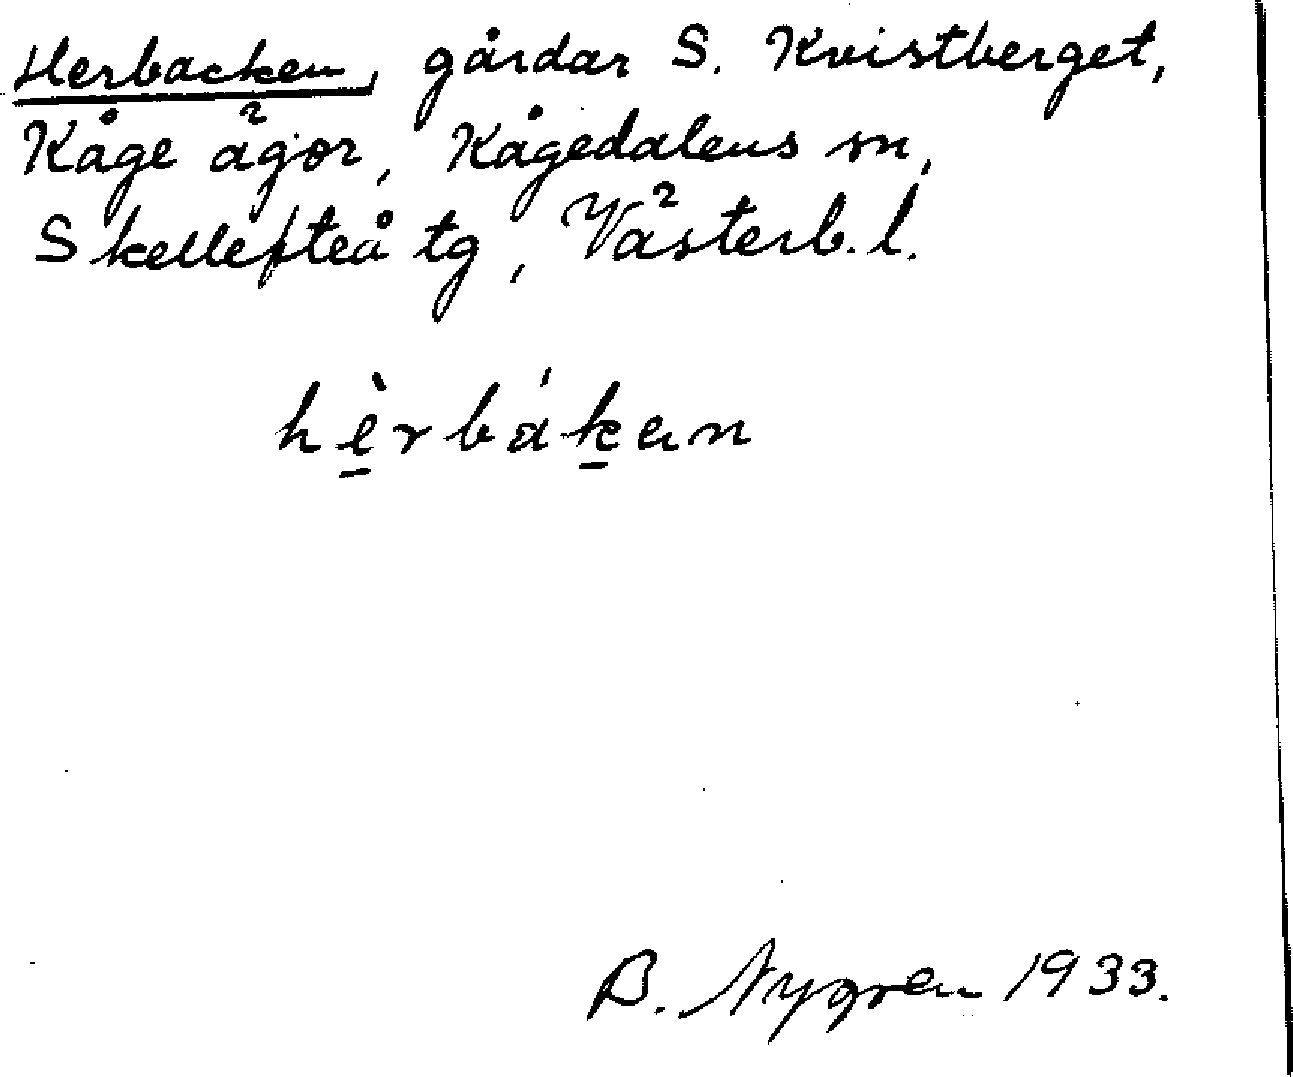 Herbacken, gårdar S. Kvistberget,
Kåge ägor, Kågedalens sn,
Skellefteå tg, Västerb. l.
hè̱rbáḵən
B. Nygren 1933.